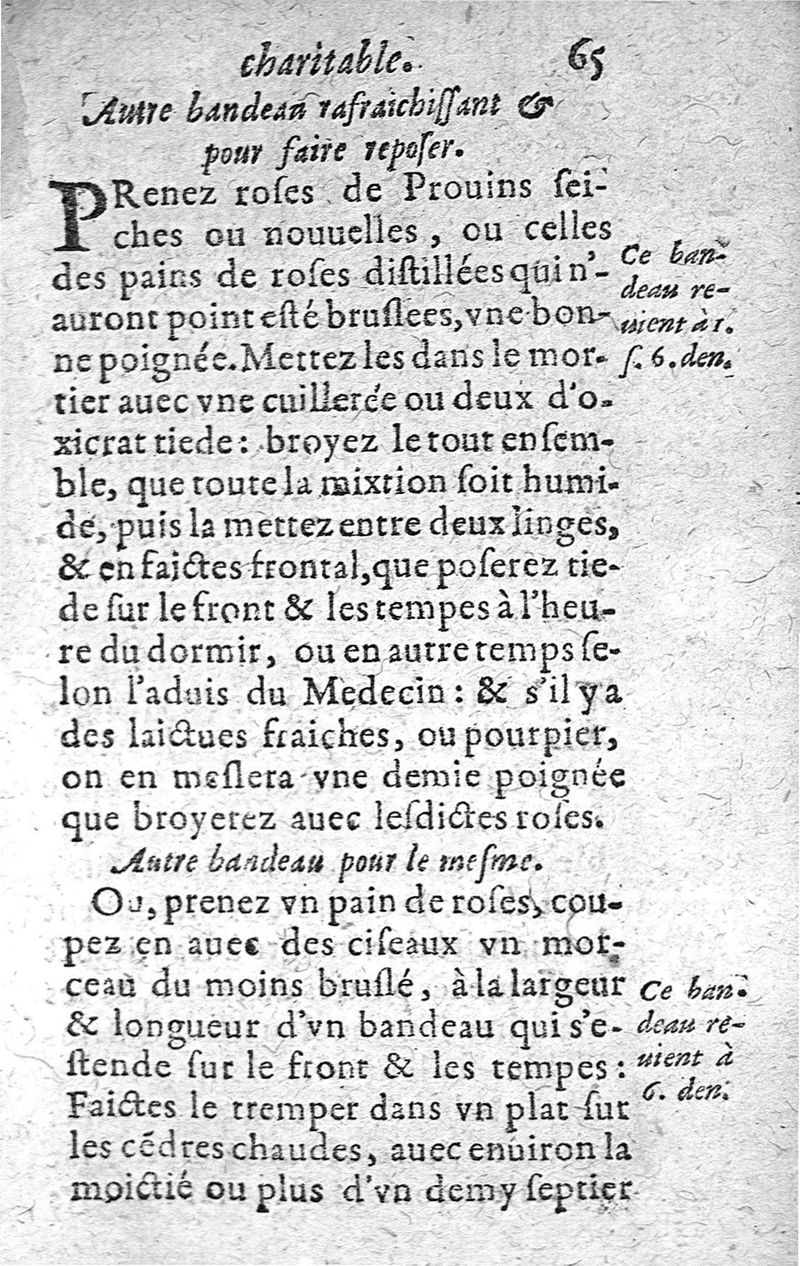 charitable. 65
Autre bandeau rafraichiſſant &
pour faire repoſer.
PRenez roſes de Prouins ſei-
ches ou nouuelles, ou celles
des pains de roſes diſtillées qui n'-
auront point eſté bruſlees, vne bon-
ne poignée. Mettez les dans le mor-
tier auec vne cuillerée ou deux d'o-
xicrat tiede: broyez le tout enſem-
ble, que toute la mixtion ſoit humi-
de, puis la mettez entre deux linges,
& en faictes frontal, que poſerez tie-
de ſur le front & les tempes à l'heu-
re du dormir, ou en autre temps ſe-
lon l'aduis du Medecin: & s'il y a
des laictues fraiches, ou pourpier,
on en meſlera vne demie poignée
que broyerez auec leſdictes roſes.
Ce ban-
deau re-
uient à 1.
ſ. 6. den.
Autre bandeau pour le meſme.
Ou, prenez vn pain de roſes, cou-
pez en auec des ciſeaux vn mor-
ceau du moins bruſlé, à la largeur
& longueur d'vn bandeau qui s'e-
ſtende ſur le front & les tempes:
Faictes le tremper dans vn plat ſur
les cẽdres chaudes, auec enuiron la
moictié ou plus d'vn demy ſeptier
Ce ban-
deau re-
uient à
6. den.